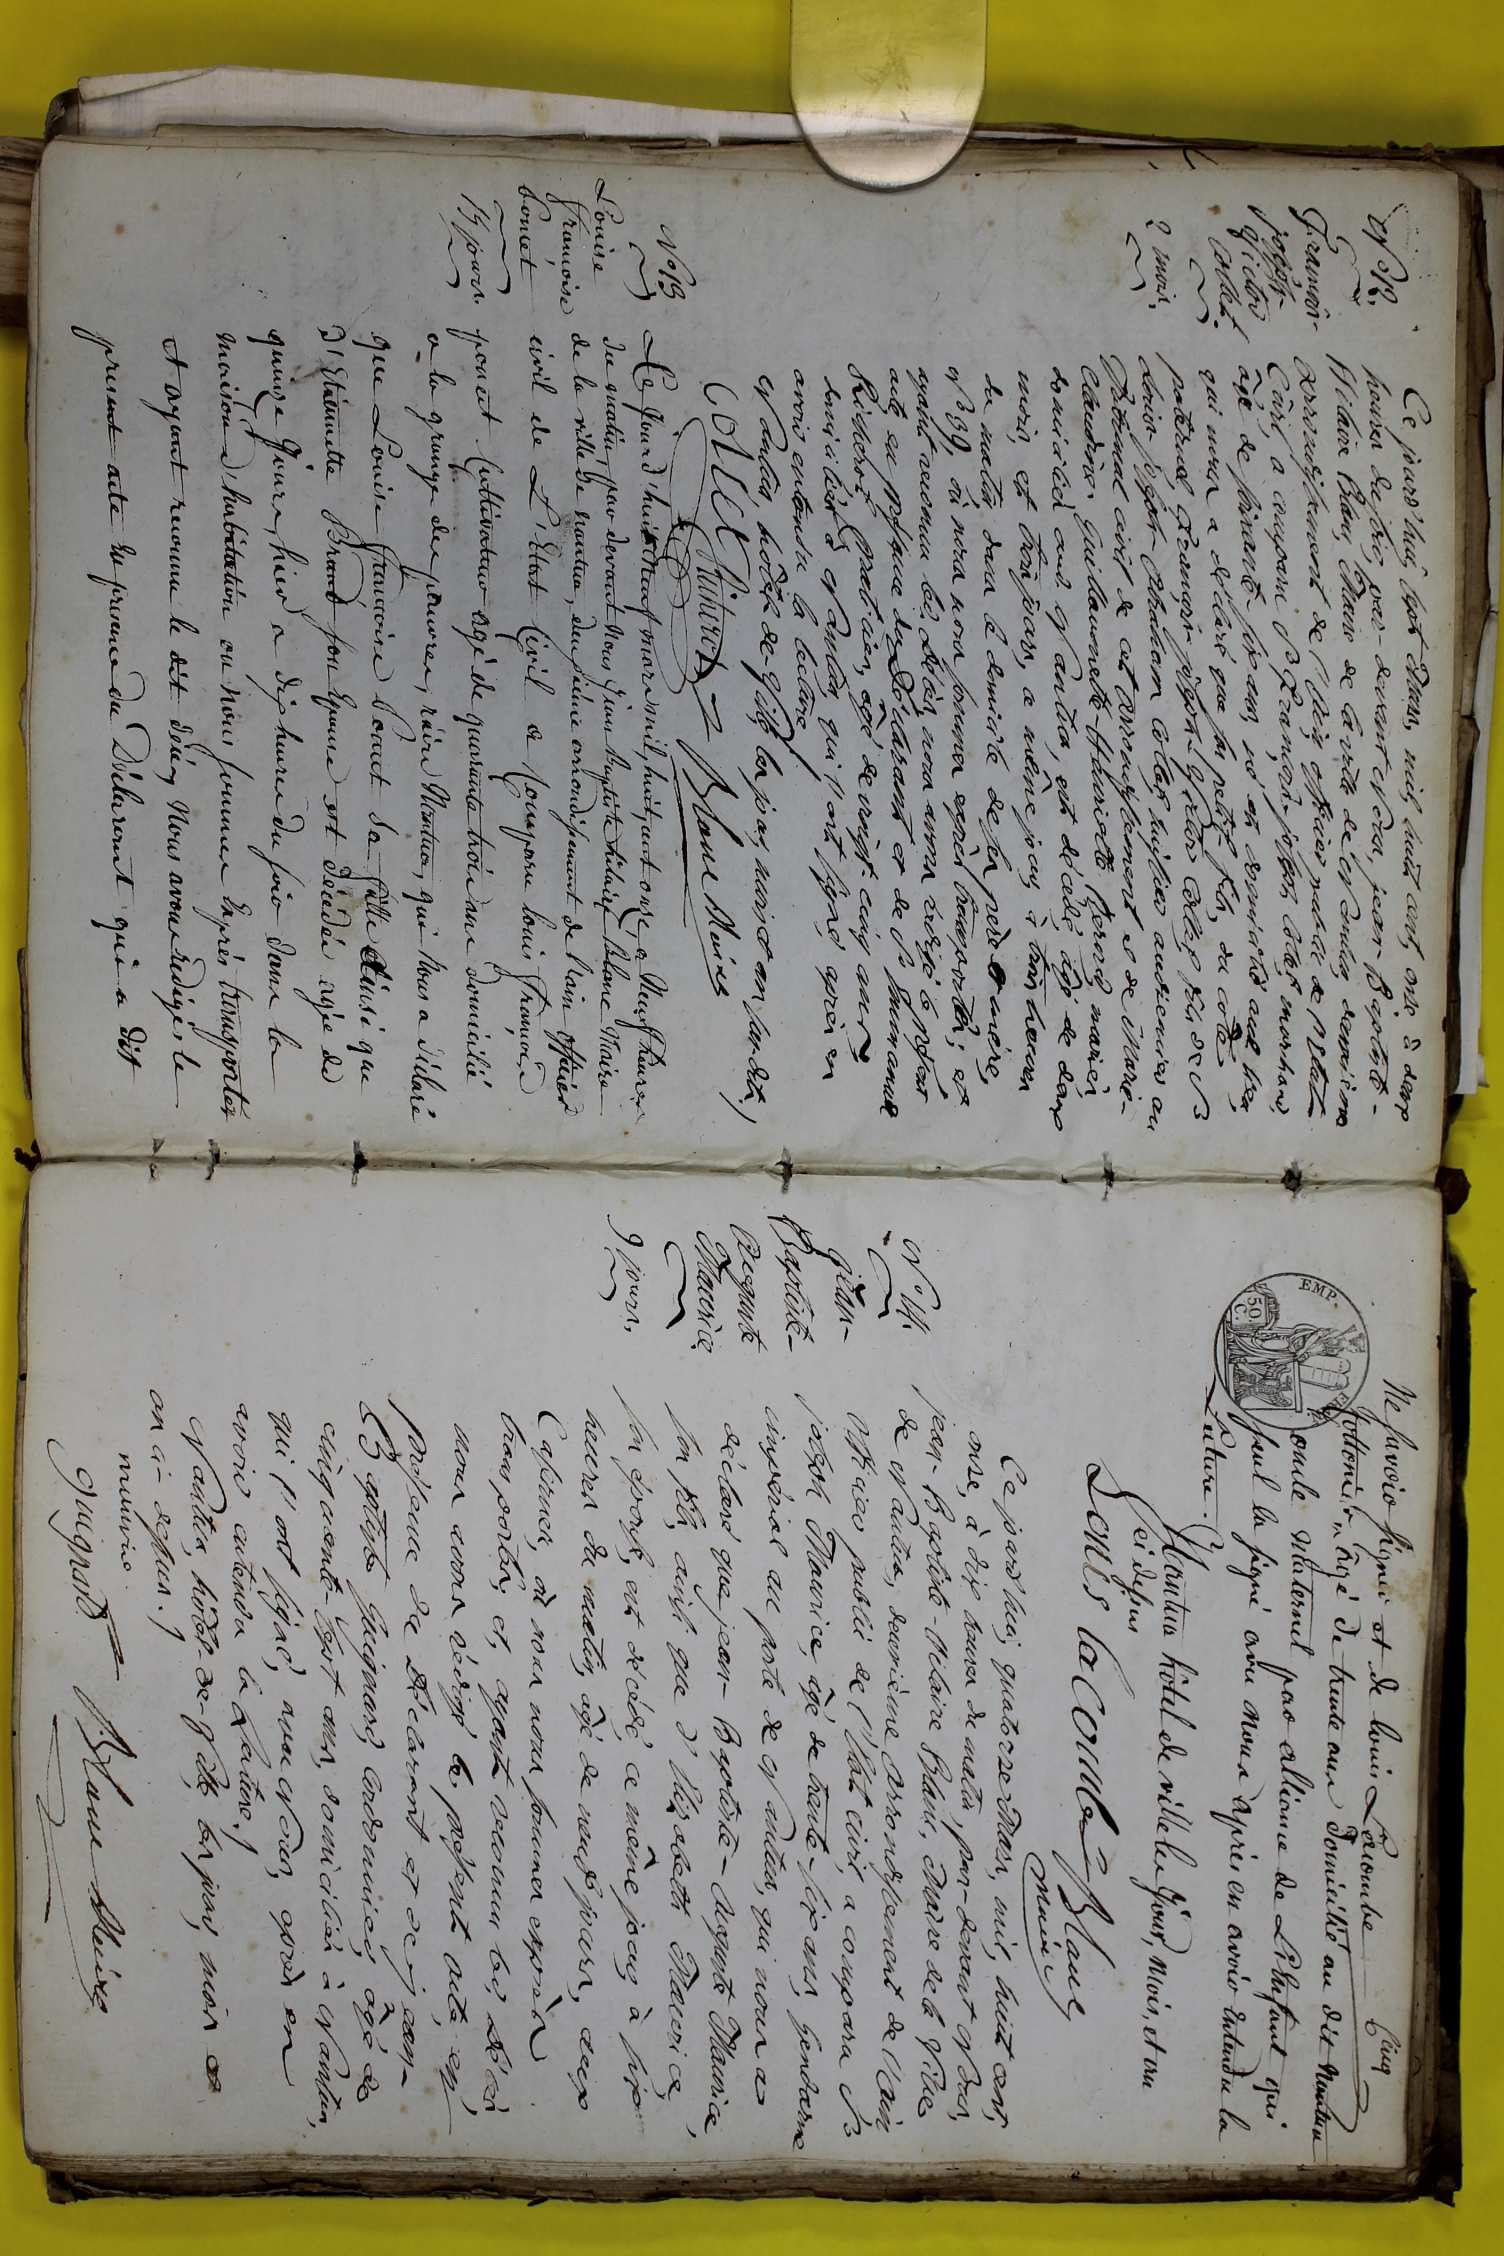 N.° 12.
François-
joseph-
victor
Collet.
2 mois.
Ce jourd'huy, sept mars, mil, huit cent, onze à deux
heures du soir, par-devant Nous, jean-Baptiste-
hilaire Blanc, Maire de la ville de Nantua, deuxième
arrondissement de l'Ain, officier public de l'état
Civil, a comparu Sr françois-joseph Collet, marchand,
âgé de soixante-six ans, né et domicilié aud. lieu
qui nous a déclaré que son petit fils, du coté
paternel, françois-joseph-victor Collet, fils de Sr
Louis-joseph-Abraham Collet, huissier audiencier au
Tribunal civil de cet arrondissement et de Marie-
Claudine-Guillaumette-Henriette mariés
domiciliés aud. Nantua, est décédé, âgé de deux
mois, et trois jours, ce même jour, à trois heures
du matin dans le domicile de ses père et mère,
N.° 69, où nous nous sommes exprès transportés; et
ayant reconnu le décès, nous avons rédigé le présent
acte en présence du Déclarant et de Sr Emmanuel
Ruichroz, âgé de vingt-cinq ans,
domiciliés à Nantua, qui l'ont signé, après en
avoir entendu la lecture./
Nantua, hôtel-de-ville, les jour, mois et an susdits./
Collet Blanc Maire
N.° 13
Louise
françoise
Poncet
15 jours.
Ce Jourd'hui Neuf mars mil, huit, cent onze, a Neuf heures
du matin, par devant Nous Jean Baptiste hilaire Blanc Maire
de la ville de nantua, deuxième arrondissement de l'ain officier
civil de L'Etat Civil a Comparu Louis François
poncet Cultivateur agé de quarante trois ans domicilié
a la grange des pauvres, rière Nantua, qui Nous a déclaré
que Louise françoise Poncet Sa fille Ainsi que
D'Etiennette Brand son Epouse est décédée agée de
quinze Jours, hier a dix heures du soir dans la
maison d'habitation ou nous sommes Exprès transportés
et ayant reconnu le dit décès, Nous avons rédigé le
present acte en presence du Déclarant qui a dit
Ne savoir signer et de louis Lacombe
Cinq
agé de trente ans Domicilié au dit Nantua
oncle maternel par alliance de L'Enfant qui
seul la signé avec nous après en avoir Entendu la
Lecture.
Nantua hôtel de ville les Jour, mois, et an
ci dessus
Louis lacombe Blanc
Maire
N.° 14.
Jean-
Baptiste-
Auguste
Maurice.
9 jours.
Ce jourd'hui, quatorze Mars, mil, huit cent,
onze, à dix heures du matin, par-devant Nous,
jean-Baptiste-hilaire Blanc, Maire de la Ville
de Nantua, deuxième arrondissement de l'ain
officier public de l'état civil, a comparu Sr
joseph Maurice, âgé de trente-six ans, gendarme
impérial au poste de Nantua, qui nous a
déclaré que jean-Baptiste-Auguste Maurice,
son fils, ainsi que d'Elizabeth Maurice,
son épouse, est décédé, ce même jour, à six
heures du matin, âgé de neuf jours, aux
Casernes, où nous nous sommes exprès
transportés, et, ayant reconnu le, décès,
nous avons rédigé le, présent acte, en
présence du Déclarant et de jean-
Baptiste Guignard, cordonnier, âgé de
cinquante-sept ans, domiciliés à Nantua,
qui l'ont signé, avec Nous, après en
avoir entendu la Lecture./
Nantua, hôtel-de-Ville, les jour, mois et
an ci-dessus./
maurice
Guignard Blanc Maire
EMP.
50
C.